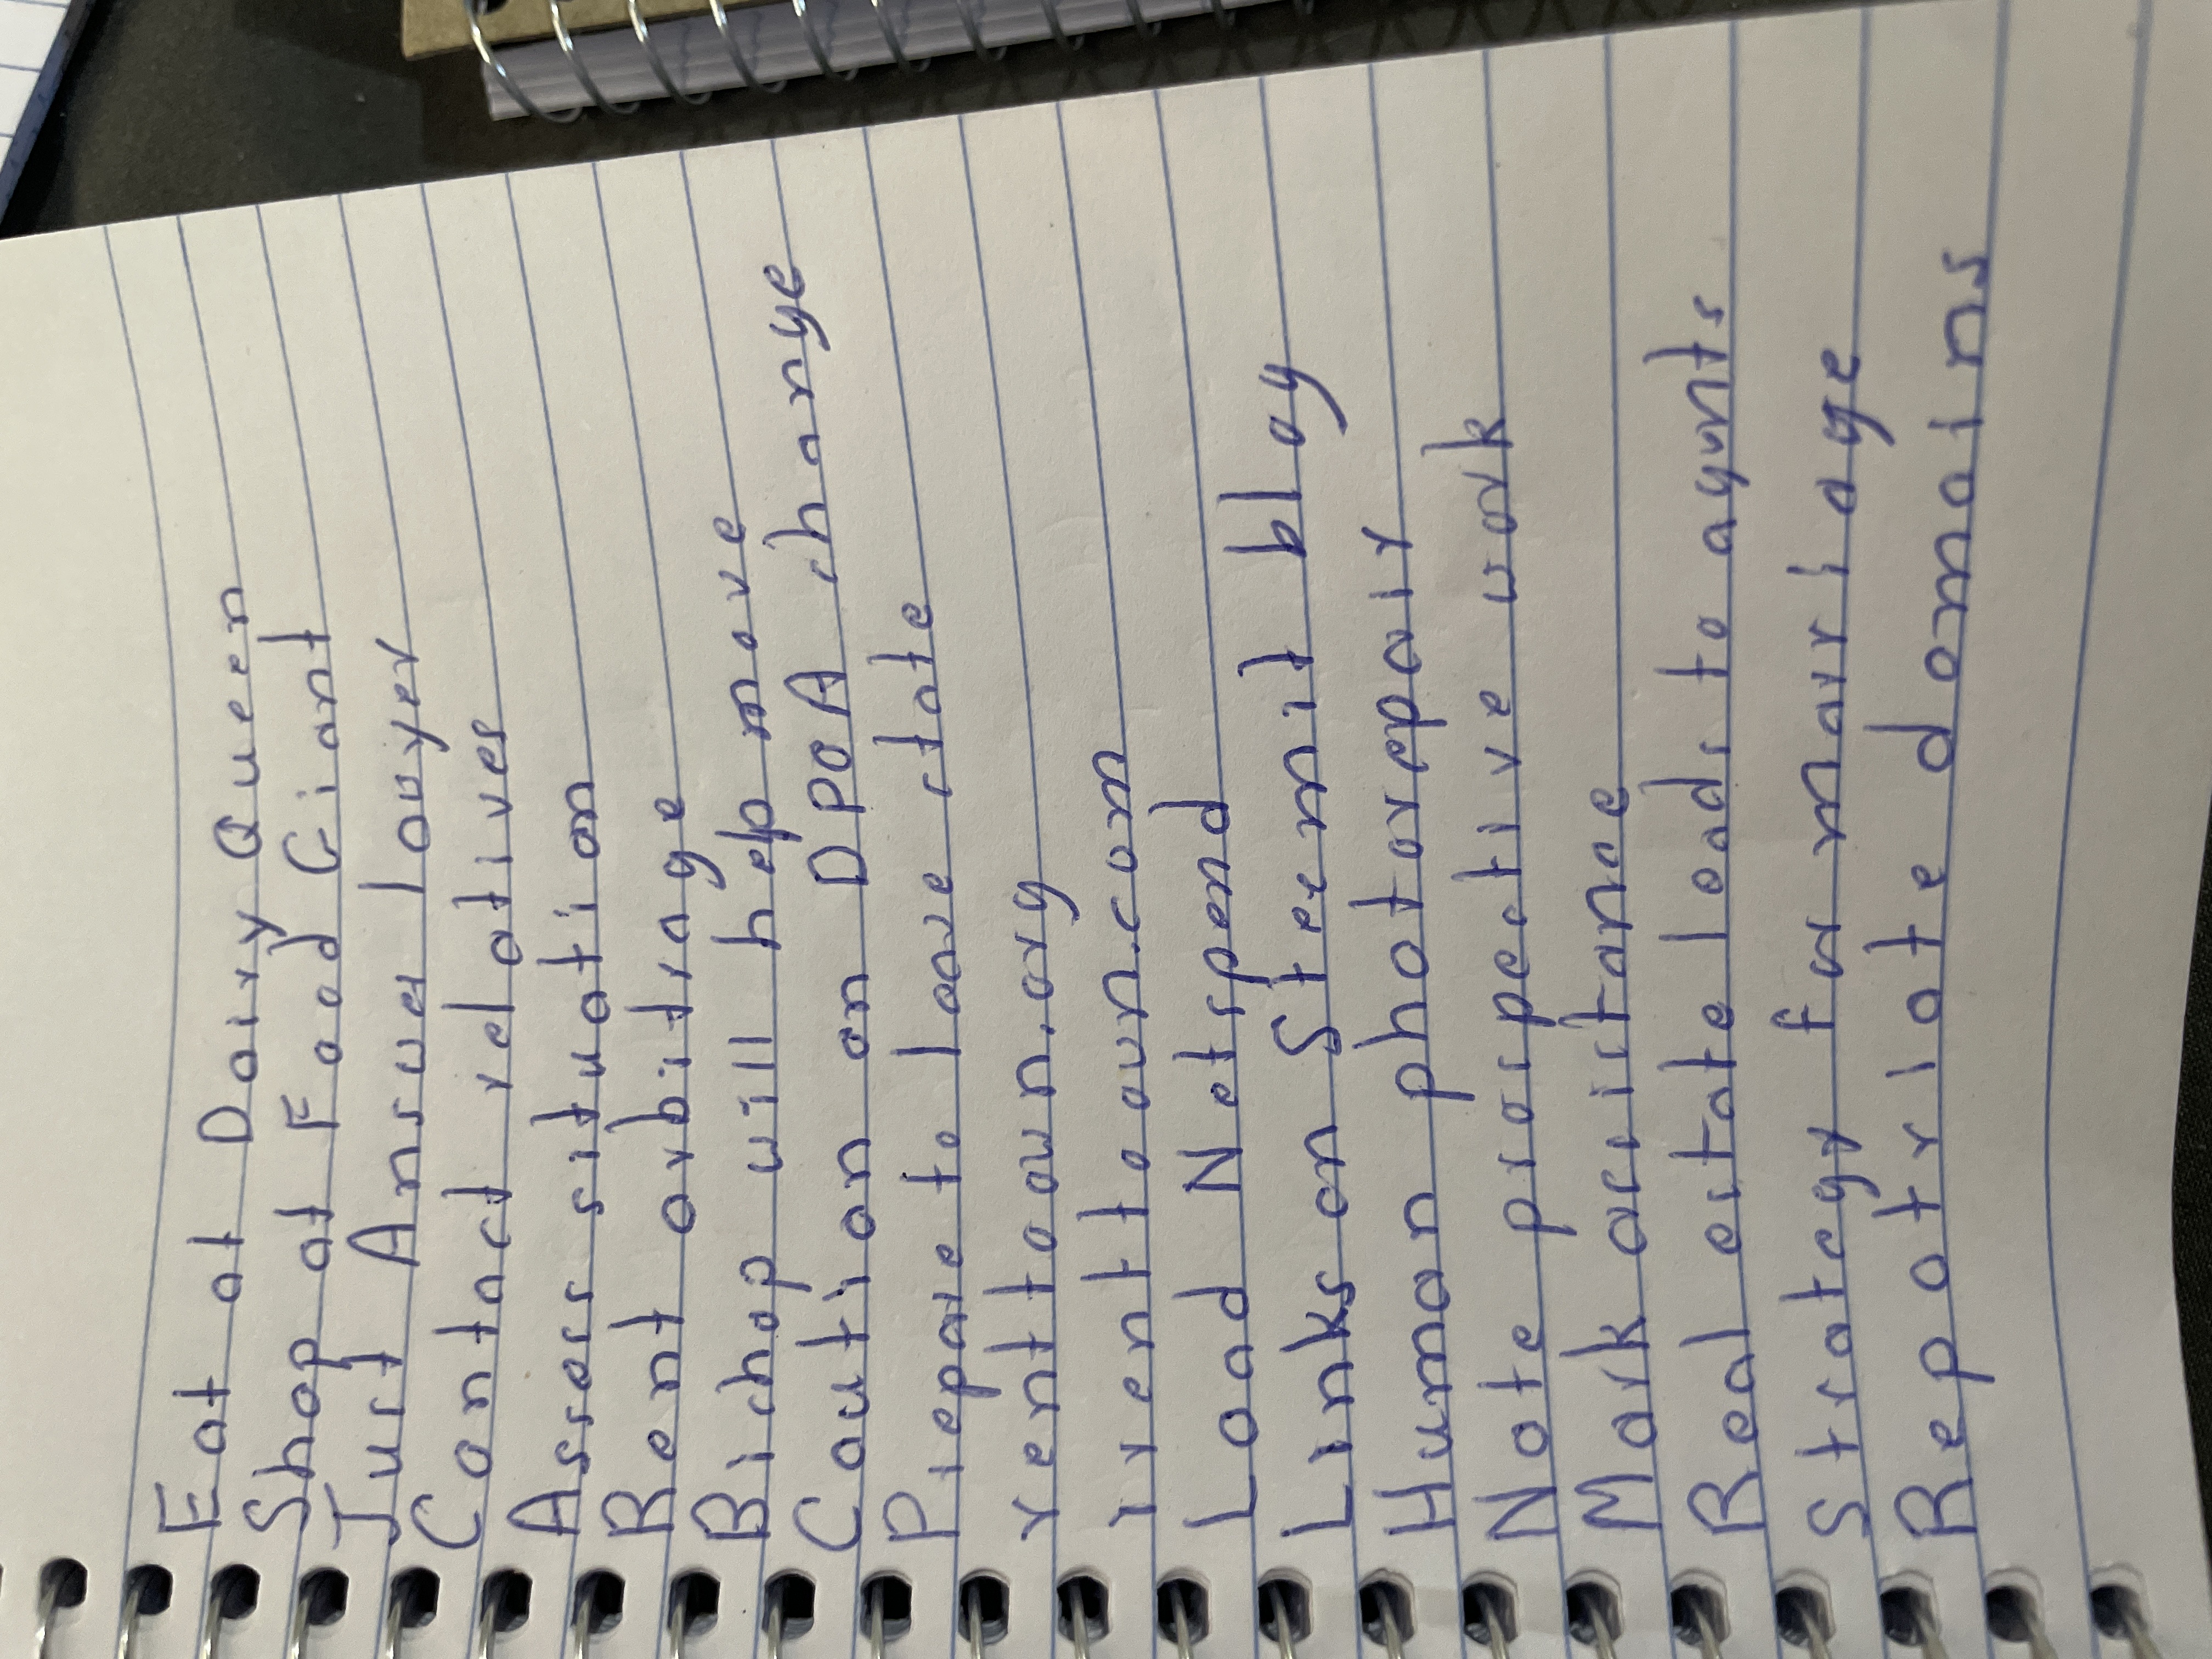 Eat at Dairy Queen
Shop at Food Giant
Just Answer lawyer
Contact relatives
Assess situation
Rent arbitrage
Bishop will help move
Caution on DPOA change
Prepare to leave state
renttoown.org
renttoown.com
Load Netspend
Links on Steemit blog
Human photorepair
Note prospective work
Mark assistance
Real estate leads to agents
Strategy for marriage
Repatriate domains